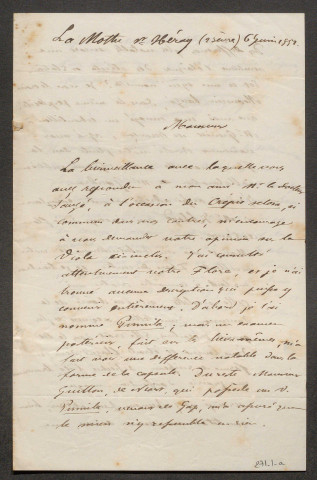 La Mothe St Héray (2 Sèvres) 6 juin 1852
Monsieur
La bienveillance avec laquelle vous
avez répondu à mon ami Mr. le docteur
Sauzé, à l'occasion du Crepis setosa, si
commun dans nos contrées, m'encourage
à vous demander votre opinion sur le
Viola ci-inclus. J'ai consulté
attentivement votre Flore, et je n'ai
trouvé aucune description qui puisse y
convenir entièrement. D'abord je l'ai
nommé Pumila; mais un examen
postérieur, fait sur le lieu même, m'a
fait voir une différence notable dans la
forme de la capsule. Du reste Monsieur
Guillon, de Niort, qui possède un V.
Pumila, venant de Gap, m'a assuré que
le mien n'y ressemble en rien.